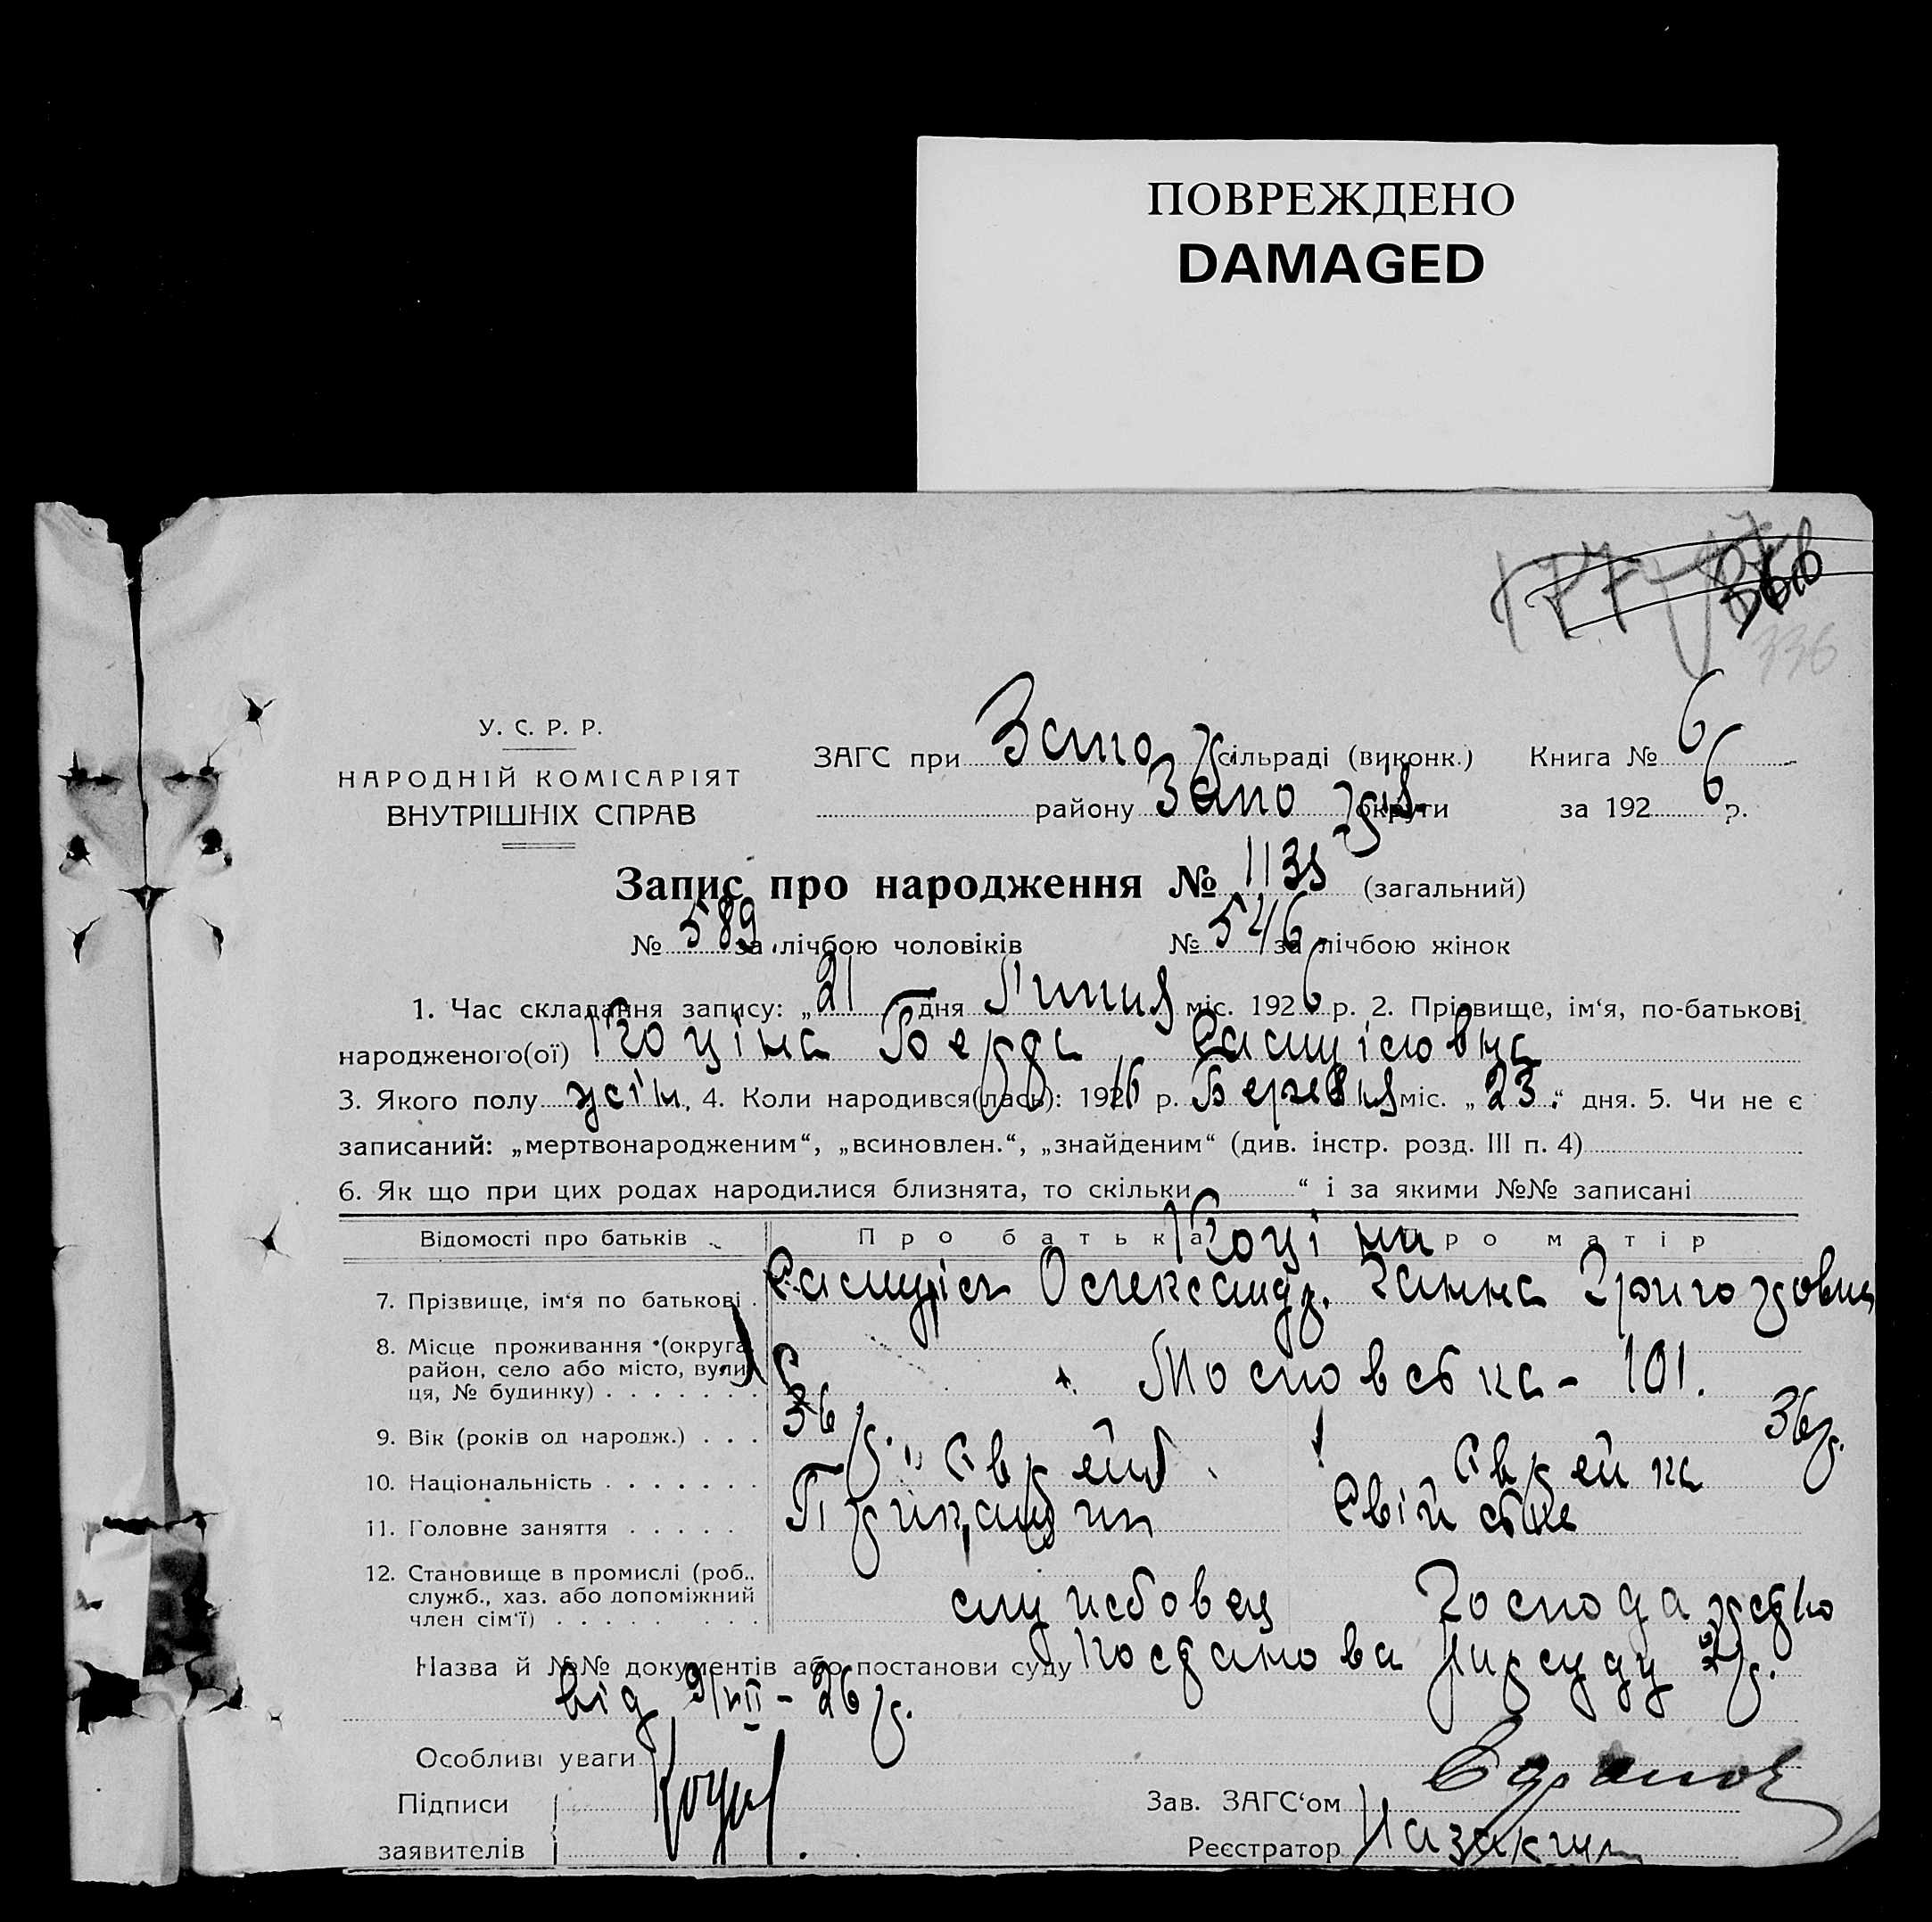 ПОВРЕЖДЕНО
DAMAGED
336
У. С. Р. Р.
НАРОДНІЙ КОМІСАРІЯТ
ВНУТРІШНІХ СПРАВ
ЗАГС при Запор сільраді (виконк.) Книга № 6
району Запоріз округи за 1926 р.
Запис про народження № 1135 (загальний)
№ 589 за лічбою чоловіків № 546 за лічбою жінок
1. Час складання запису: „21 дня Липня міс. 1926 р. 2. Прізвище, ім‘я, по-батькові
народженого(ої) Коціна Берта Самуіловна
3. Якого полу жін. 4. Коли народився(лась): 1916 р. Березня міс. „23.“ дня. 5. Чи не є
записаний: „мертвонародженим“, „всиновлен.“, „знайденим“ (див. інстр. розд. III п. 4)
6. Як що при цих родах народилися близнята, то скільки “ і за якими №№ записані
Відомості про батьків Про батька Про матір
Коціни
7. Прізвище, ім‘я по батькові . Самуіл Олександр. Ганна Григоровна
8. Місце проживання (округа,
район, село або місто, вули-
ця, № будинку) . . . . . . . Московська - 101.
9. Вік (років од народж.) . . . 36 р. 36 р.
10. Національність . . . . . . . Єврей Єврейка
11. Головне заняття . . . . . Прикащик Свійське
12. Становище в промислі (роб.,
служб., хаз. або допоміжний
член сім‘ї) . . . . . . . . . службовец Господарство
Назва й №№ документів або постанови суду Постанова Нарсуду 2 р.
від 9/VII - 26 р.
Особливі уваги
Підписи
заявителів
Зав. ЗАГС‘ом
Реєстратор